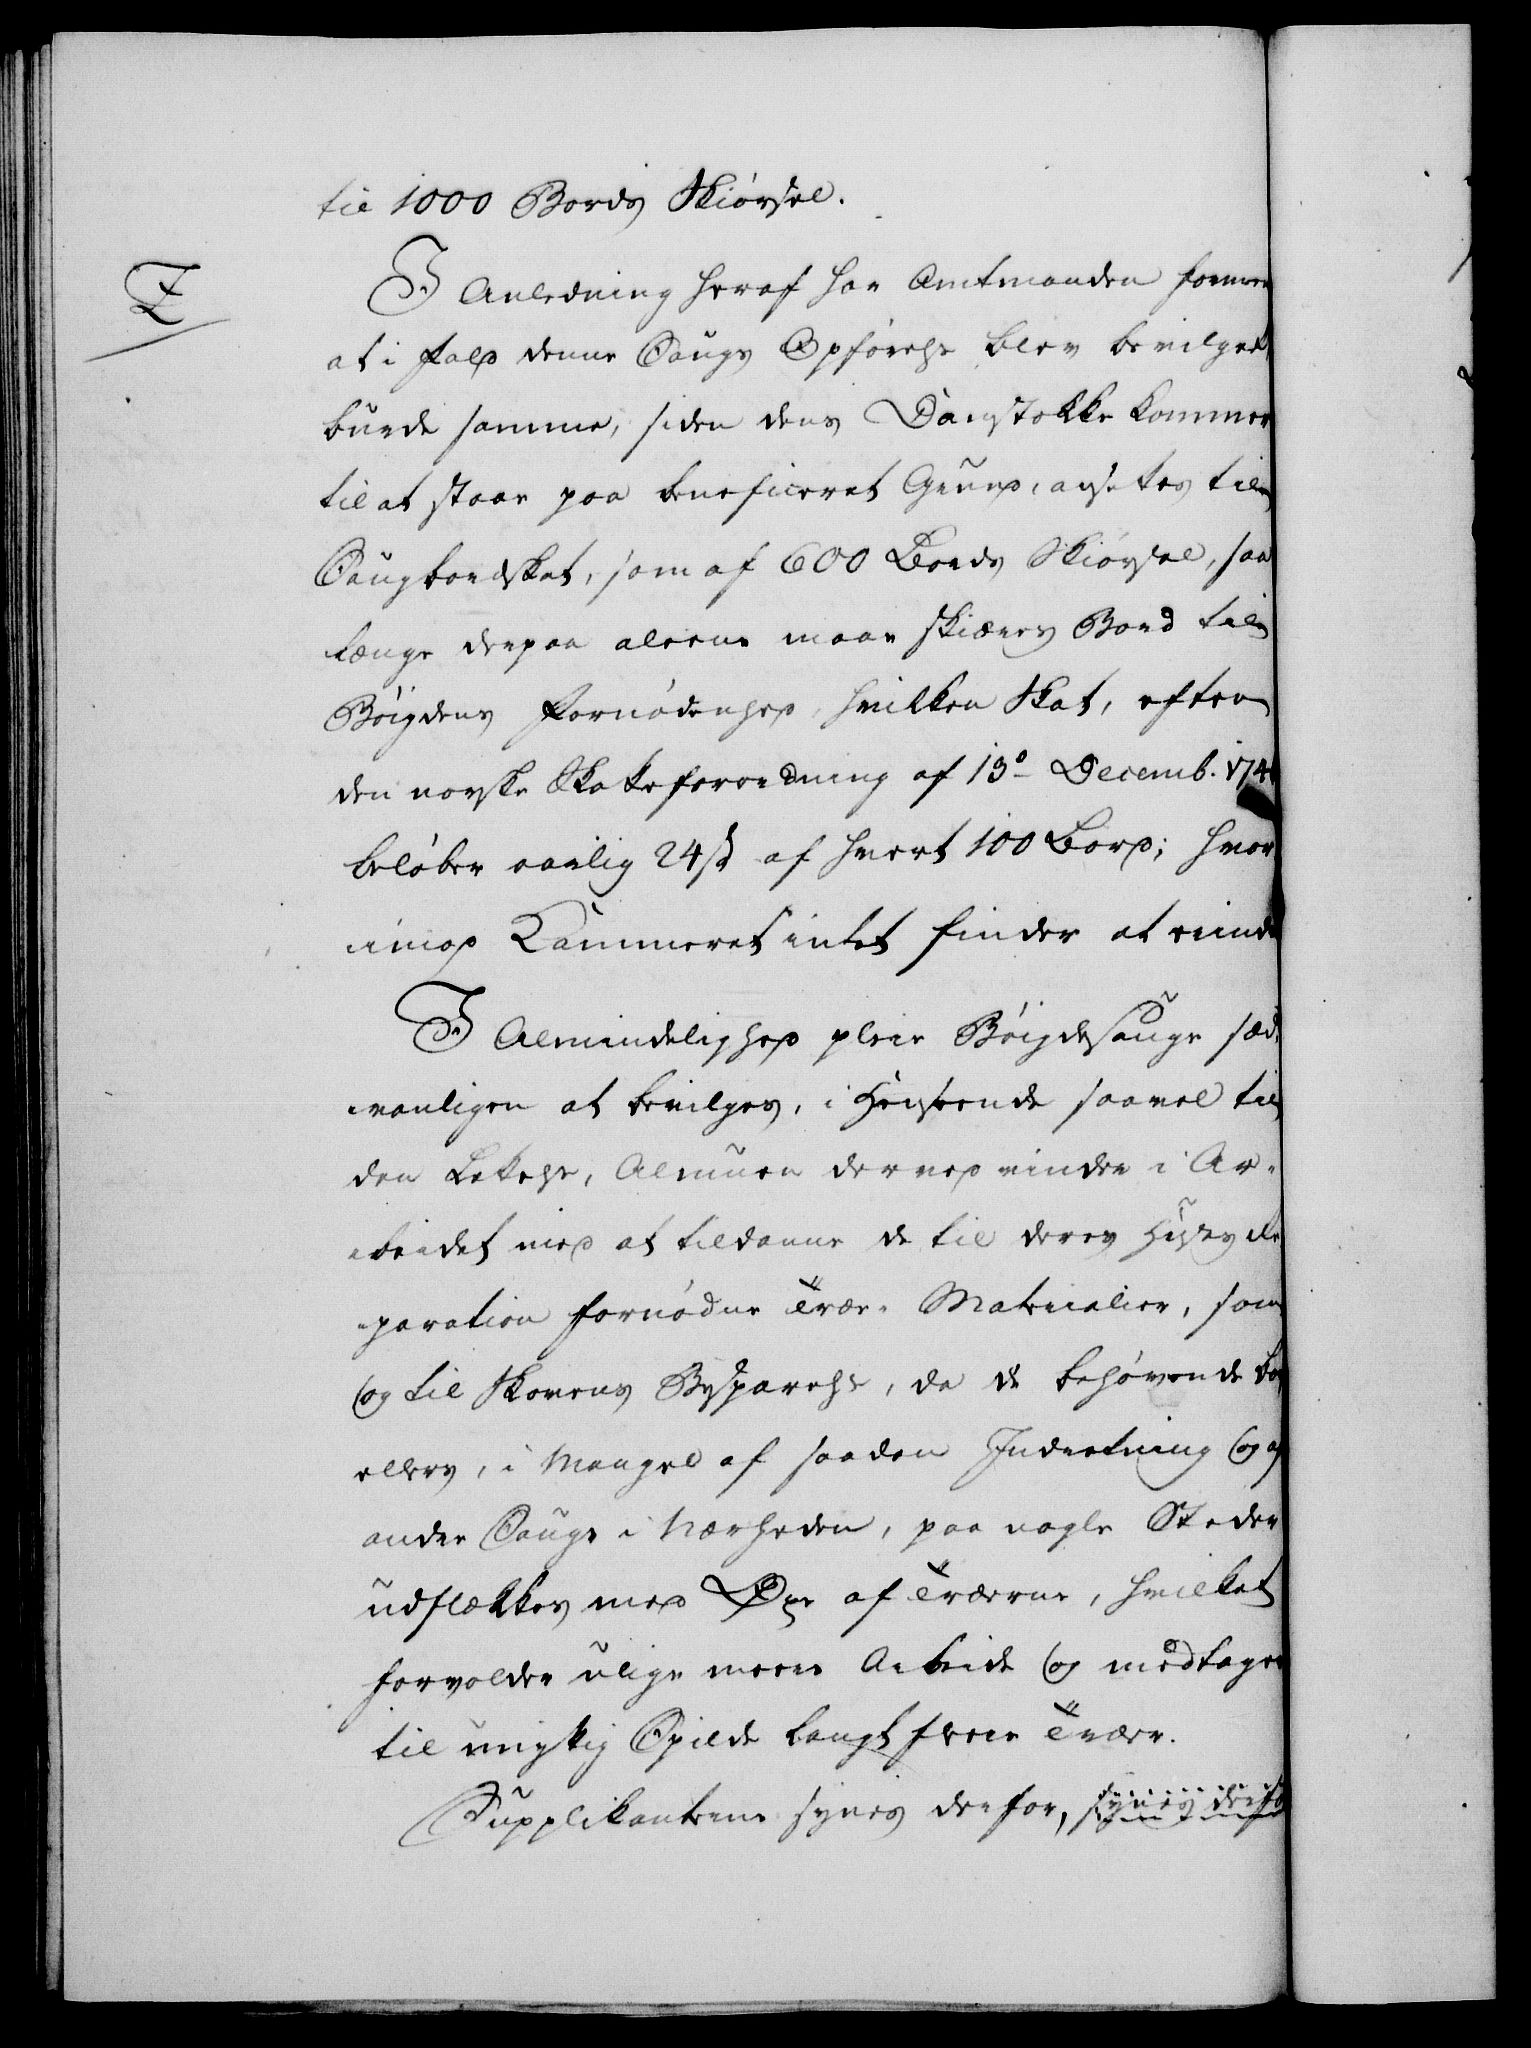 til 1000 Bords Skiørsel.
I Anledning heraf har Amtmanden formeent
at i fald denne Saugs Opførelse blev bevilget,
burde samme, siden dens Damstokke kommer
til at staae paa beneficeret Grund, ansættes til
Saugbordskat, som af 600 Bords Skiørsel, saa
længe derpaa aleene maae skiæres Bord til
Bøigdens Fornødenhed, hvilken Skat, efter
den norske Skatteforordning af 13de Decemb. 174
beløber aarlig 24 s af hvert 100 Bord; hvor
imod Kammeret intet finder at erindre
I Almindelighed pleie Bøigdesauge sæd,,
vanligen at bevilges, i Henseende saavel til
den Lettelse, Almuen derved vinder i Ar,,
beidet med at tildanne de til deres Huses Re
paration fornødne Træe- Materialier, som
og til Skovens Besparelse, da de behøvende Bord
ellers, i Mangel af saadan Indretning og af
andre Sauge i Nærheden, paa nogle Steder
udflækkes med Øxe af Træerne, hvilket
forvolder ulige meere Arbeide og medtager
til unyttig Spilde langt fleere Træer.
Z
Supplikanterne synes derfor, synes derfor